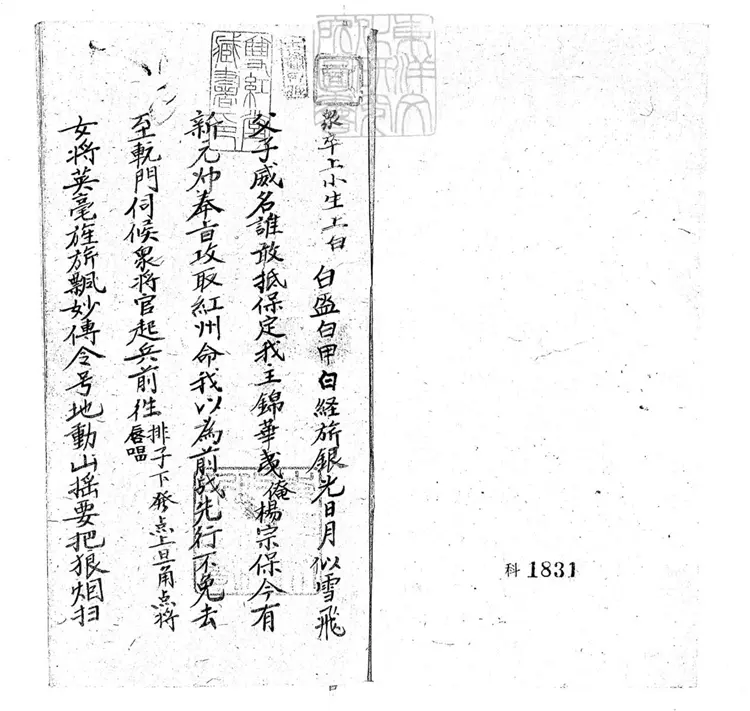 衆卒上小生上白　白盔白甲白経旂銀光日月似雪飛
父子威名誰敢抵保定我主錦華夷俺楊宗保今有
新元帅奉旨攻取紅州命我以為前战先行不免去
至軏門伺候衆将官起兵前徃排子下發点上旦角点将唇唱
女将英毫旌旂飄妙傳令号地動山摇要把狠烟扫
雙紅堂藏書印
東洋文化研究所圖書
科 1831